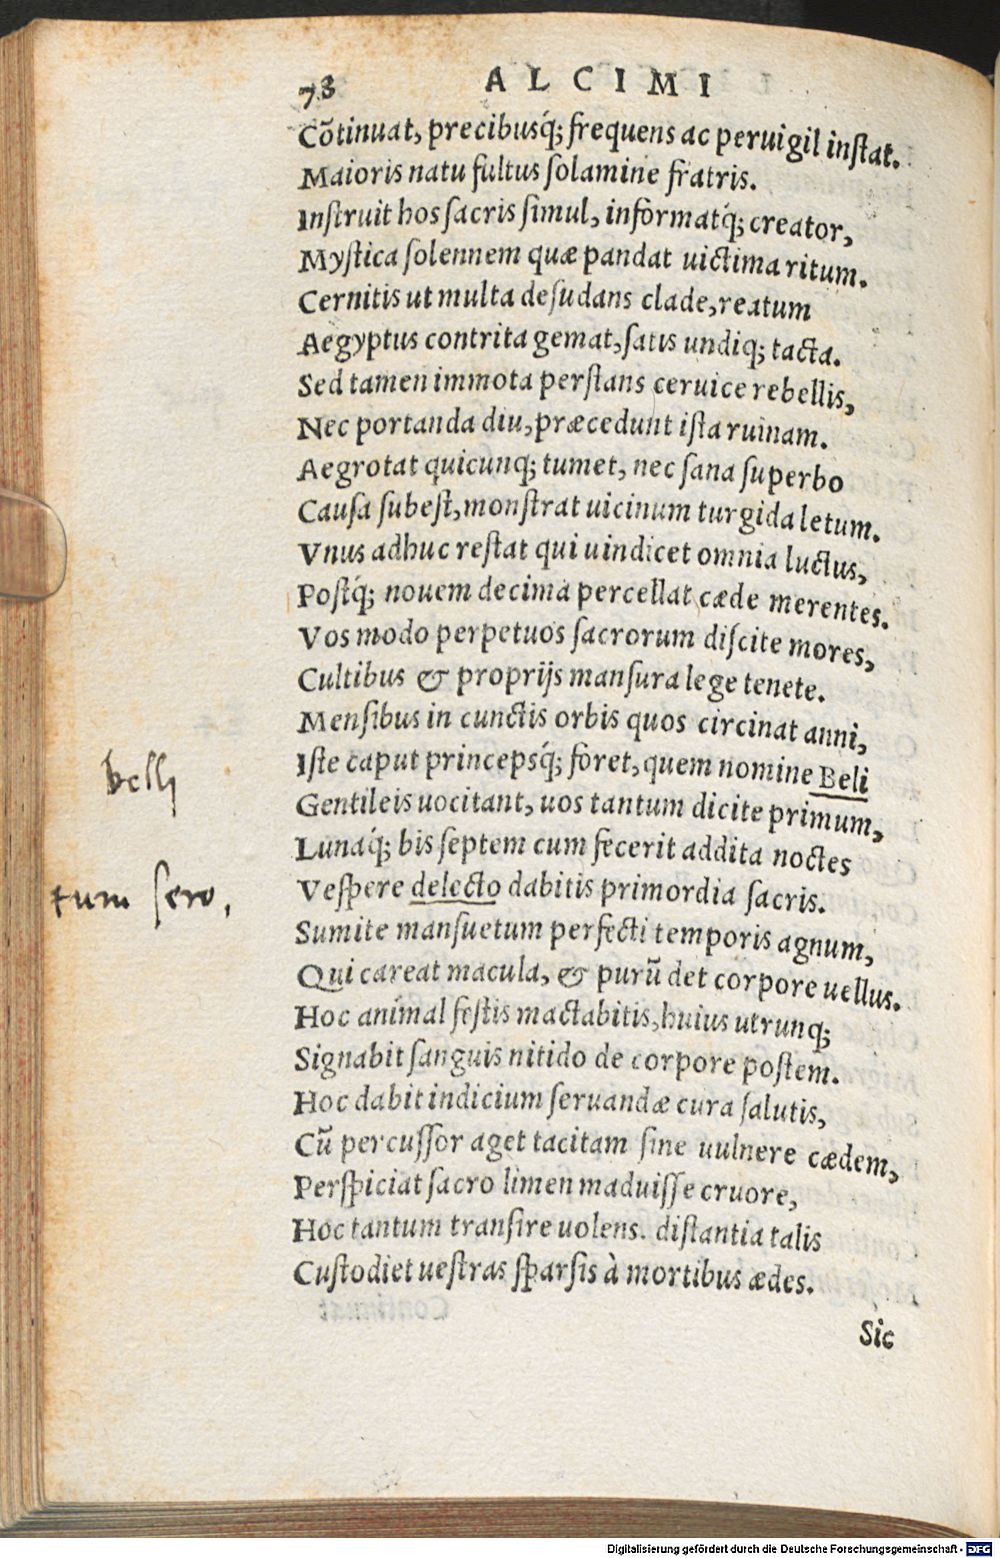 78 ALCIMI
Cõtinuat, precibusq́; frequens ac peruigil instat.
Maioris natu fultus solamine fratris.
Instruit hos sacris simul, informatq́; creator,
Mystica solennem quæ pandat uictima ritum.
Cernitis ut multa desudans clade, reatum
Aegyptus contrita gemat, satis undiq; tacta.
Sed tamen immota perstans ceruice rebellis,
Nec portanda diu, præcedunt ista ruinam.
Aegrotat quicunq; tumet, nec sana superbo
Causa subest, monstrat uicinum turgida letum.
Vnus adhuc restat qui uindicet omnia luctus,
Postq́; nouem decima percellat cæde merentes.
Vos modo perpetuos sacrorum discite mores,
Cultibus & proprijs mansura lege tenete.
Mensibus in cunctis orbis quos circinat anni,
Iste caput princepsq́; foret, quem nomine Beli
belli
Gentileis uocitant, uos tantum dicite primum,
Lunaq́; bis septem cum fecerit addita noctes
Vespere delecto dabitis primordia sacris.
tum sero,
Sumite mansuetum perfecti temporis agnum,
Qui careat macula, & purũ det corpore uellus.
Hoc animal festis mactabitis, huius utrunq;
Signabit sanguis nitido de corpore postem.
Hoc dabit indicium seruandæ cura salutis,
Cũ percussor aget tacitam sine uulnere cædem,
Perspiciat sacro limen maduisse cruore,
Hoc tantum transire uolens. distantia talis
Custodiet uestras sparsis à mortibus ædes.
Sic
Digitalisierung gefördert durch die Deutsche Forschungsgemeinschaft - DFG